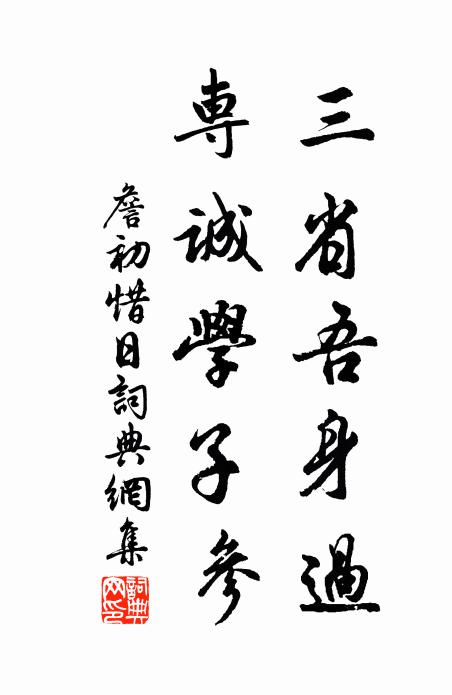 三省吾身過
専誠學子參
詹初惜日詞典網集
詞典网印